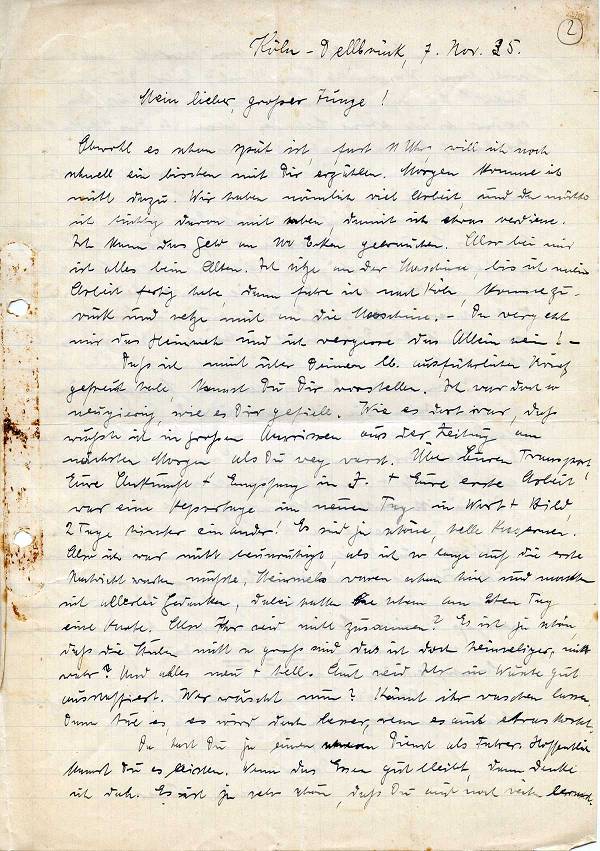 2
Köln-Dellbrück, 7. Nov. 35.
Mein lieber, großer Junge!
Obwohl es schon spät ist, fast 11 Uhr, will ich noch
schnell ein bisschen mit Dir erzählen. Morgen komme ich
nicht dazu. Wir haben nämlich viel Arbeit, und da möchte
ich tüchtig davon mit haben, damit ich etwas verdiene.
Ich kann das Geld an Ecken gebrauchen. Also bei mir
ist alles beim Alten. Ich sitze an der Maschine, bis ich meine
Arbeit fertig habe, dann fahre ich nach Köln, komme zu-
rück und setze mich an die Maschine. – Da vergeht
mir das Heimweh und ich vergesse das Allein sein! –
Daß ich mich über Deinen lb. ausführlichen Brief
gefreut habe, kannst Du Dir vorstellen. Ich war doch so
neugierig, wie es Dir gefiele. Wie es dort war, daß
wußte ich in großen Umrissen aus der Zeitung am
nächsten Morgen als Du weg warst. Über Euren Transport,
Eure Ankunft + Empfang in J. + Eure erste Arbeit
war eine Reportage im neuen Tag in Wort + Bild,
2 Tage hinter einander! Es sind ja schöne, helle Kasernen.
Also ich war nicht beunruhigt, als ich so lange auf die erste
Nachricht warten mußte, waren schon hin und machte
ich allerlei Gedanken, dabei hatte schon am 2ten Tag
eine Karte. Also Ihr seid nicht zusammen? Es ist ja schön
daß die Stuben nicht so groß sind das ist doch heimeliger, nicht
wahr? Und alles neu + hell. Auch seid Ihr in Wäsche gut
ausstaffiert. Wer wäscht nun? Könnt ihr waschen lassen.
Dann tue es, es wird doch besser, wenn es auch etwas kostet.
Da hast Du ja einen Dienst als Fahrer. Hoffentlich
kannst Du es leisten. Wenn das Essen gut bleibt, dann denke
ich doch. Es ist ja sehr schön, daß Du auch noch